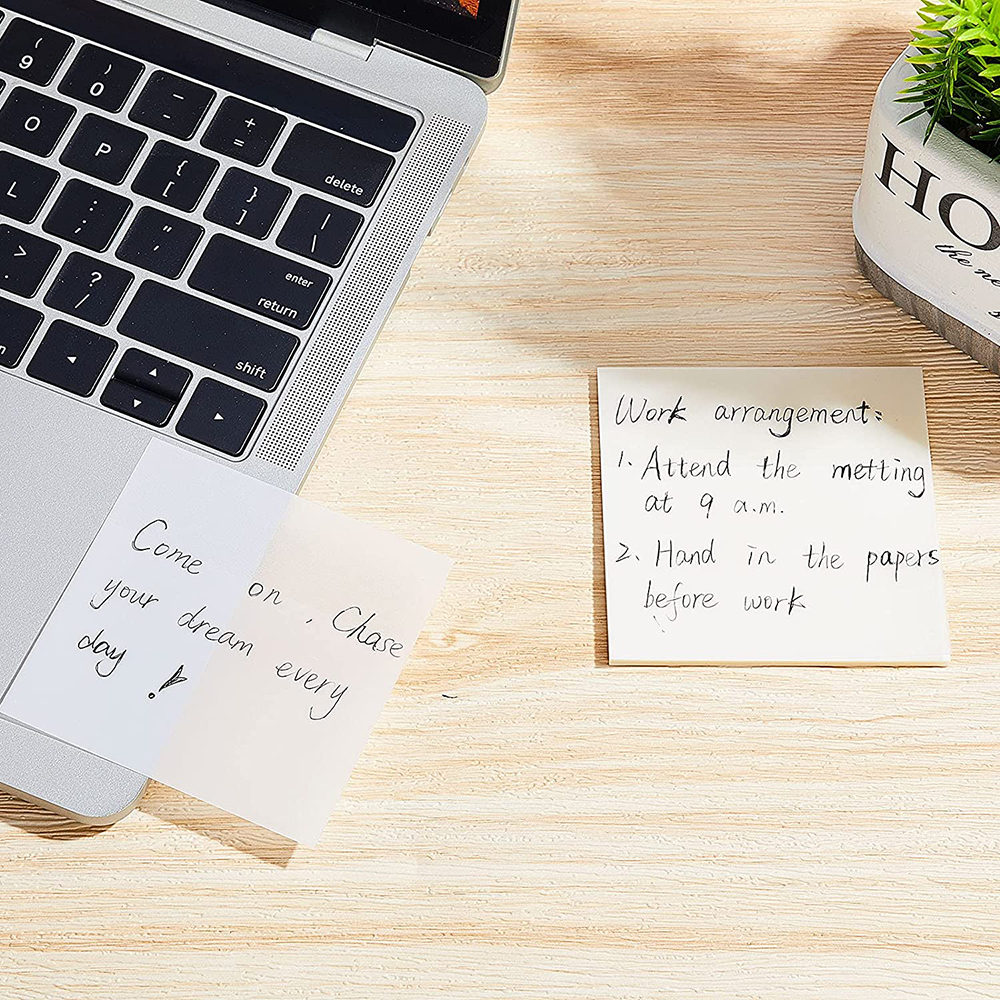 ( 9
) 0
_ -
+ =
delete
O
P
{ [
} ]
| \
L
: ;
" '
enter
return
> .
? /
shift
n
HO
the ne
s
Work arrangement:
1. Attend the metting
at 9 a.m.
2. Hand in the papers
before work
Come on , Chase
your dream every
day !